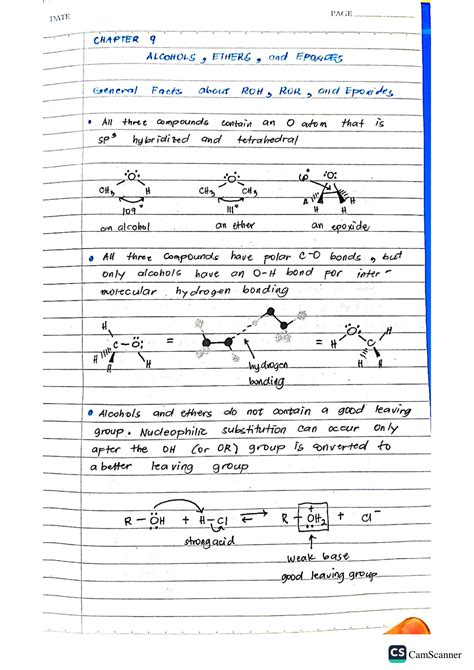 DATE
PAGE
CHAPTER 9
ALCOHOLS, ETHERS, and EPOXIDES
General Facts about ROH, ROR, and Epoxides
• All three compounds contain an O atom that is
sp³ hybridized and tetrahedral
:O: :O: :O:
CH₃ H CH₃ CH₃ H H H
109° 111°
an alcohol an ether an epoxide
• All three compounds have polar C-O bonds, but
only alcohols have an O-H bond for inter-
molecular hydrogen bonding
H
C - O: = = H O: C H
H H H H H
hydrogen
bonding
• Alcohols and ethers do not contain a good leaving
group. Nucleophilic substitution can occur only
after the OH (or OR) group is converted to
a better leaving group
R - ÖH + H-Cl ⇌ R - OH₂ + Cl⁻
+
strong acid
weak base
good leaving group
CS CamScanner